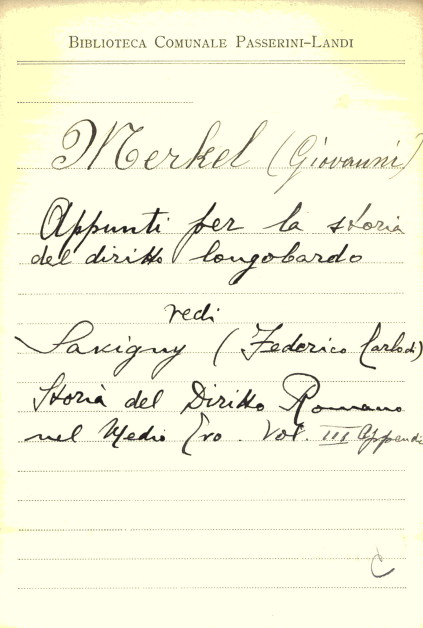 BIBLIOTECA COMUNALE PASSERINI-LANDI
Merkel (Giovanni)
Appunti per la storia
del diritto longobardo
vedi
Savigny (Federico Carlo di)
Storia del Diritto Romano
nel Medio Evo. Vol. III Appendice
C